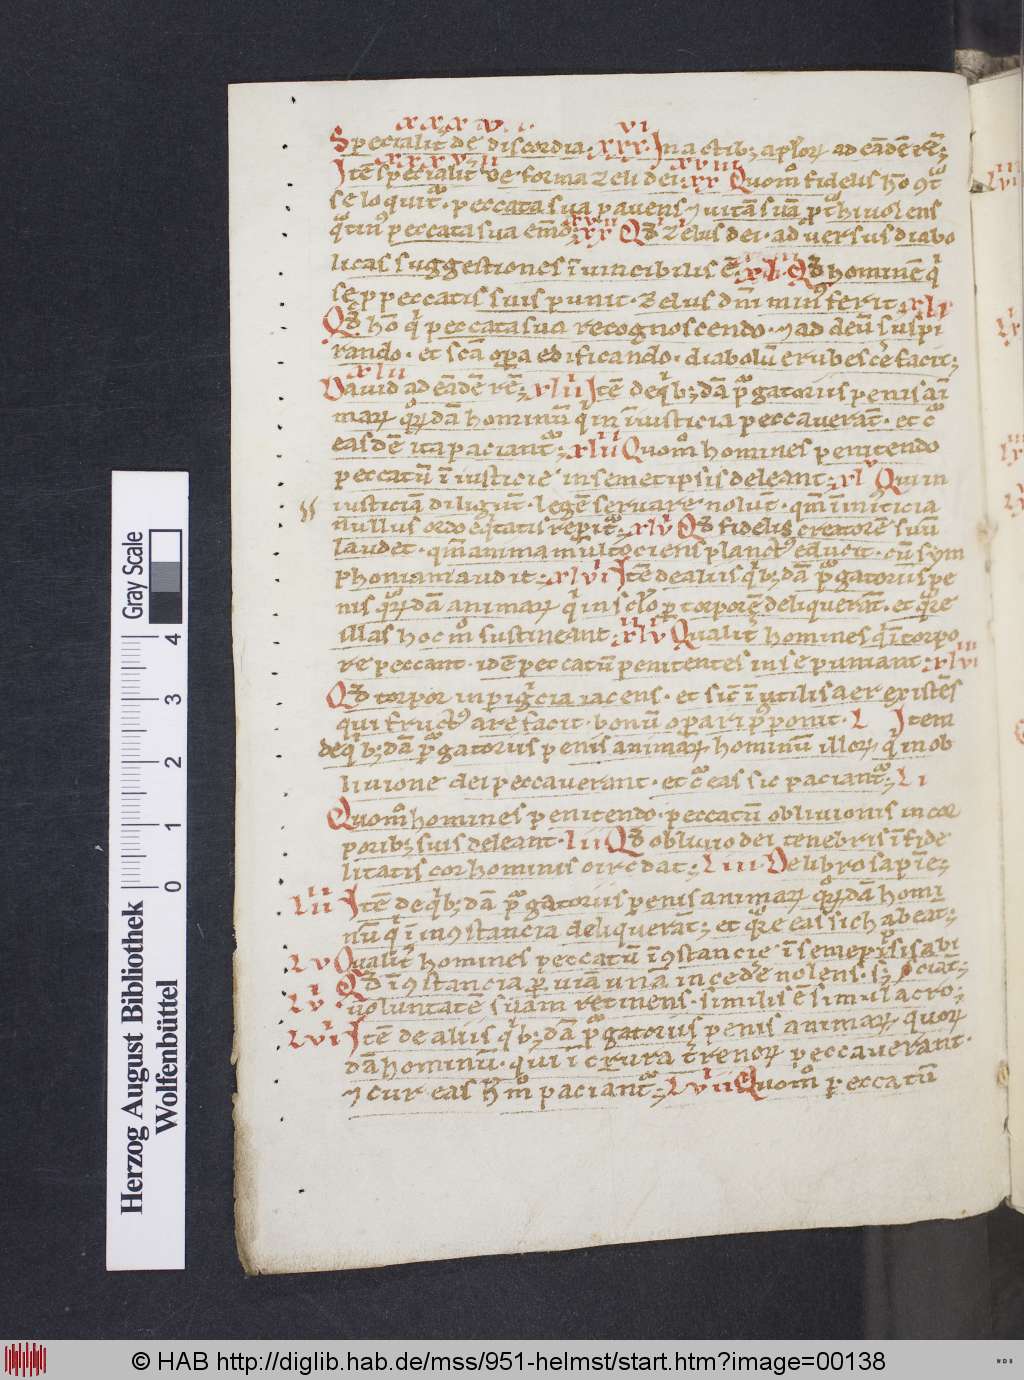 xxxv. vi
Specialit̄ de discordia. xxx. In actib; aplor̄ ad eādē rē;
xxxvii xxviii
Itē specialit̄ de forma zeli dei. xx Quom̊ fidelis hō ꝯtª
se loquit̄ᵃ. peccata sua pauens ⁊ uitā suā ꝑhi uolens
qªtin̄ peccata sua emd̄. xx Qd̄ zelus dei. aduersus diabo
licas suggestiones īuincibilis ē. xl. Qd̄ hominē qⁱ
se ꝓ peccatis suis punit. Zelus dn̄i min̄ ferit. xli
Qd̄ hō qⁱ peccata sua recognoscendo. ⁊ ad deū suspi
rando. et scā oꝑa edificando. diabolū erubescere facit;
xlii
Dauid ad eādē rē; xliii Itē deqⁱb;dā pªgatoriis penis ai
mar̄ qr̄dā hominū qⁱ in īiusticia peccauerāt. et cᵃ
easdē ita paciant̄ᵃ; xliii Quom̊ homines penitendo
peccatū īiusticie in semetipsis deleant. xlv Qui in
iusticiā diligūt. legē seruare nolūt. qm̄ īiniticia
nullus ordo eqⁱtatis reperit̄ᵃ. xlv Qd̄ fidelis creatorē suū
laudet. qm̄ anima multociens planctꝰ educit. cū sym
phoniam audit. xlvi Itē de aliis qⁱb;dā pªgatoriis pe
nis qr̄dā animar̄ qⁱ in sclo ꝑ torporē deliquerāt. et qªre
illas hoc m̊ sustineant. xlv Qualit̄ homines qⁱ ī torpo
re peccant. idē peccatū penitentes in se puniant. xlviiii
Qd̄ torpor in pigⁱcia iacens. et sic ī inutilis aer existēs
qui fructꝰ arefacit. bonū operari pᵒponit. L Item
deqⁱb;dā pªgatoriis penis animar̄ hominū illor̄ qⁱ in ob
liuione dei peccauerant. et cᵃ eas sic paciant̄ᵃ; Li
Quom̊ homines penitendo. peccatū obliuionis in cor
porib; suis deleant. Lii Qd̄ obliuio dei tenebris īfide
litatis cor hominis circūdat; Liii. De libro sapiē;
Liiii Itē deqⁱb;dā pªgatoriis penis animar̄ qr̄dā homi
nū qⁱ ī inꝯstancia deliquerāt; et qªre eas sic habeāt;
Lv Qualit̄ homines peccatū īꝯstancie ī semetipsis abi
ciāt;
Lvi Qd̄ īꝯstancia ꝑ uiā unā incedere nolens. s;
uoluntatē suam retinens. similis ē simulacro;
Lvii Itē de aliis qⁱb;dā pªgatoriis penis animar̄ quor̄
dā hominū. qui ī crura t̄renor̄ peccauerant.
⁊ cur eas h̊ m̊ paciant̄ᵃ; Lviii Quom̊ peccatū
Gray Scale
0 1 2 3 4
Herzog August Bibliothek
Wolfenbüttel
© HAB http://diglib.hab.de/mss/951-helmst/start.htm?image=00138